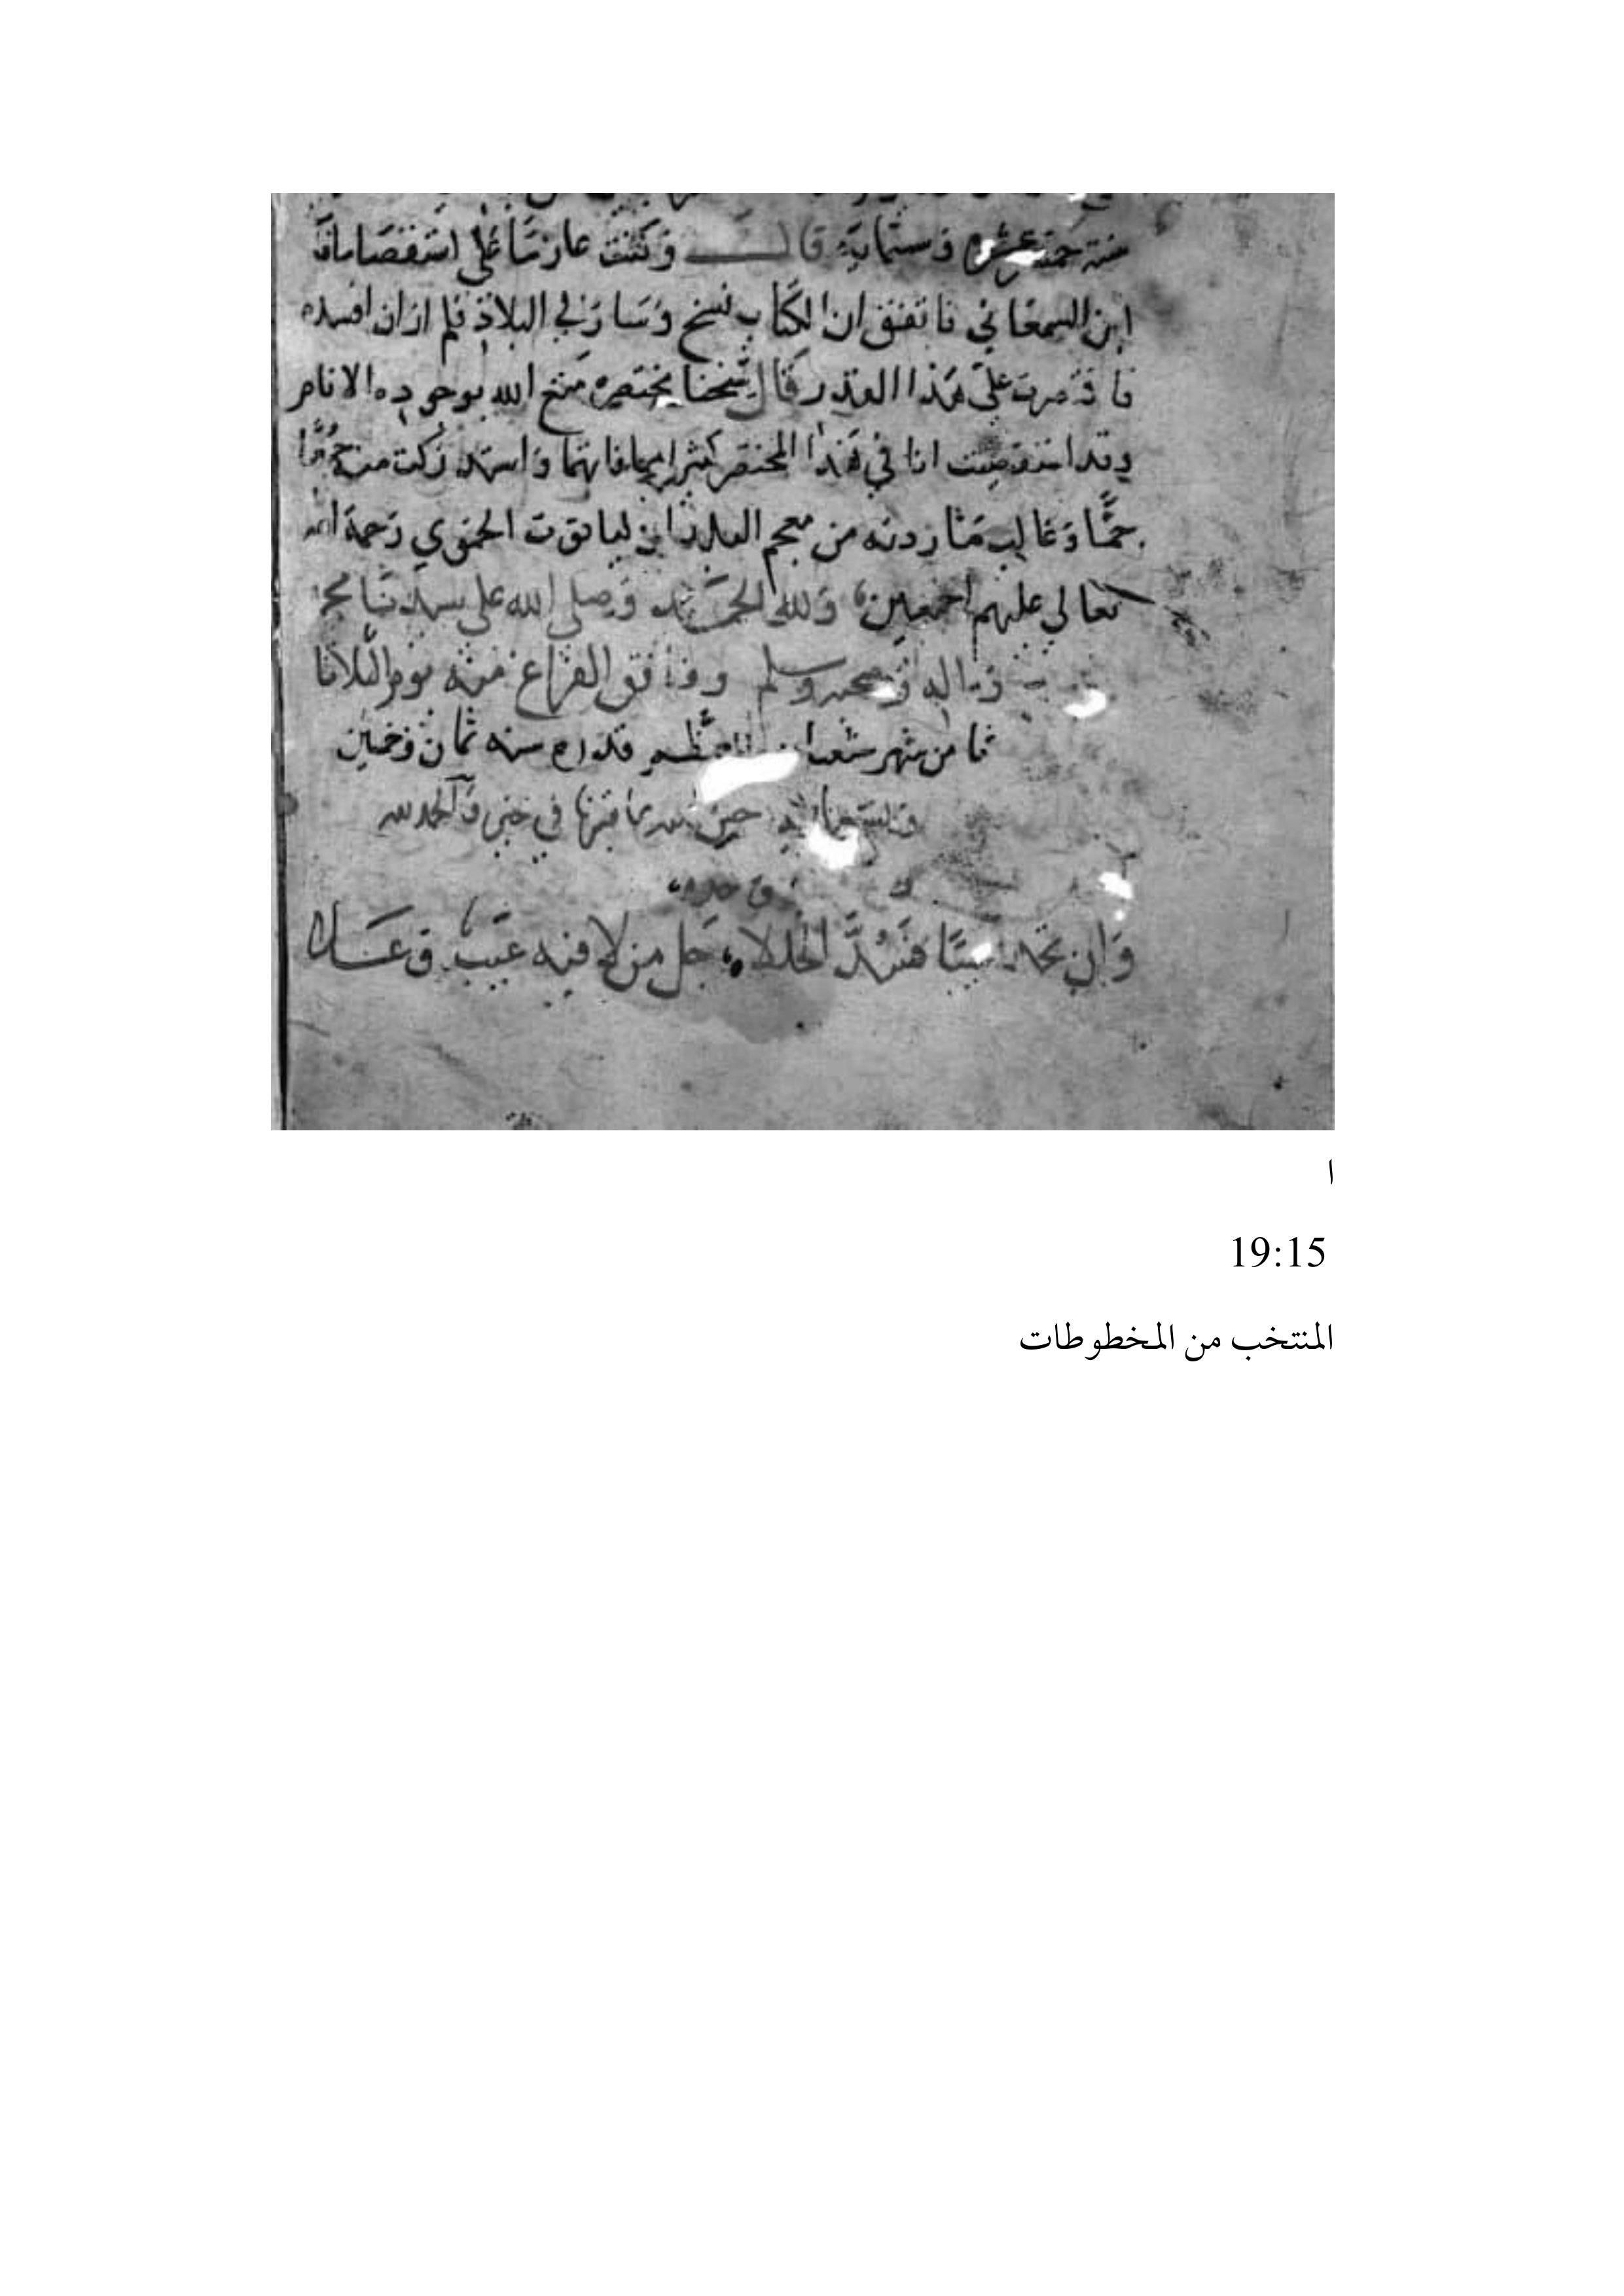 سنة خمس عشره وستماية قال وكنت عازما على استقصا ما فا
ابن السمعاني فاتفق ان الكتاب نسخ وسار في البلاد فلم ار ان افسده
فاقتصرت على هذا القدر قال شيخنا مختصره متع الله بوجوده الانام
وقد استقصيت انا في هذا المختصر كثيرا مما فاتهما واستدركت منه جما
جما وغالب ما زدته من معجم البلدان لياقوت الحموي رحمة الله
تعالى عليهم اجمعين ولله الحمد وصلى الله على سيدنا محمد
واله وصحبه وسلم ووافق الفراغ منه يوم الثلاثا
ثامن شهر شعبان المعظم قدره سنه ثمان وخمسين
في خير والحمد لله
وحده
وان تجد عيبا فسد الخللا جل من لا فيه عيب وعلا
ا
19:15
المنتخب من المخطوطات